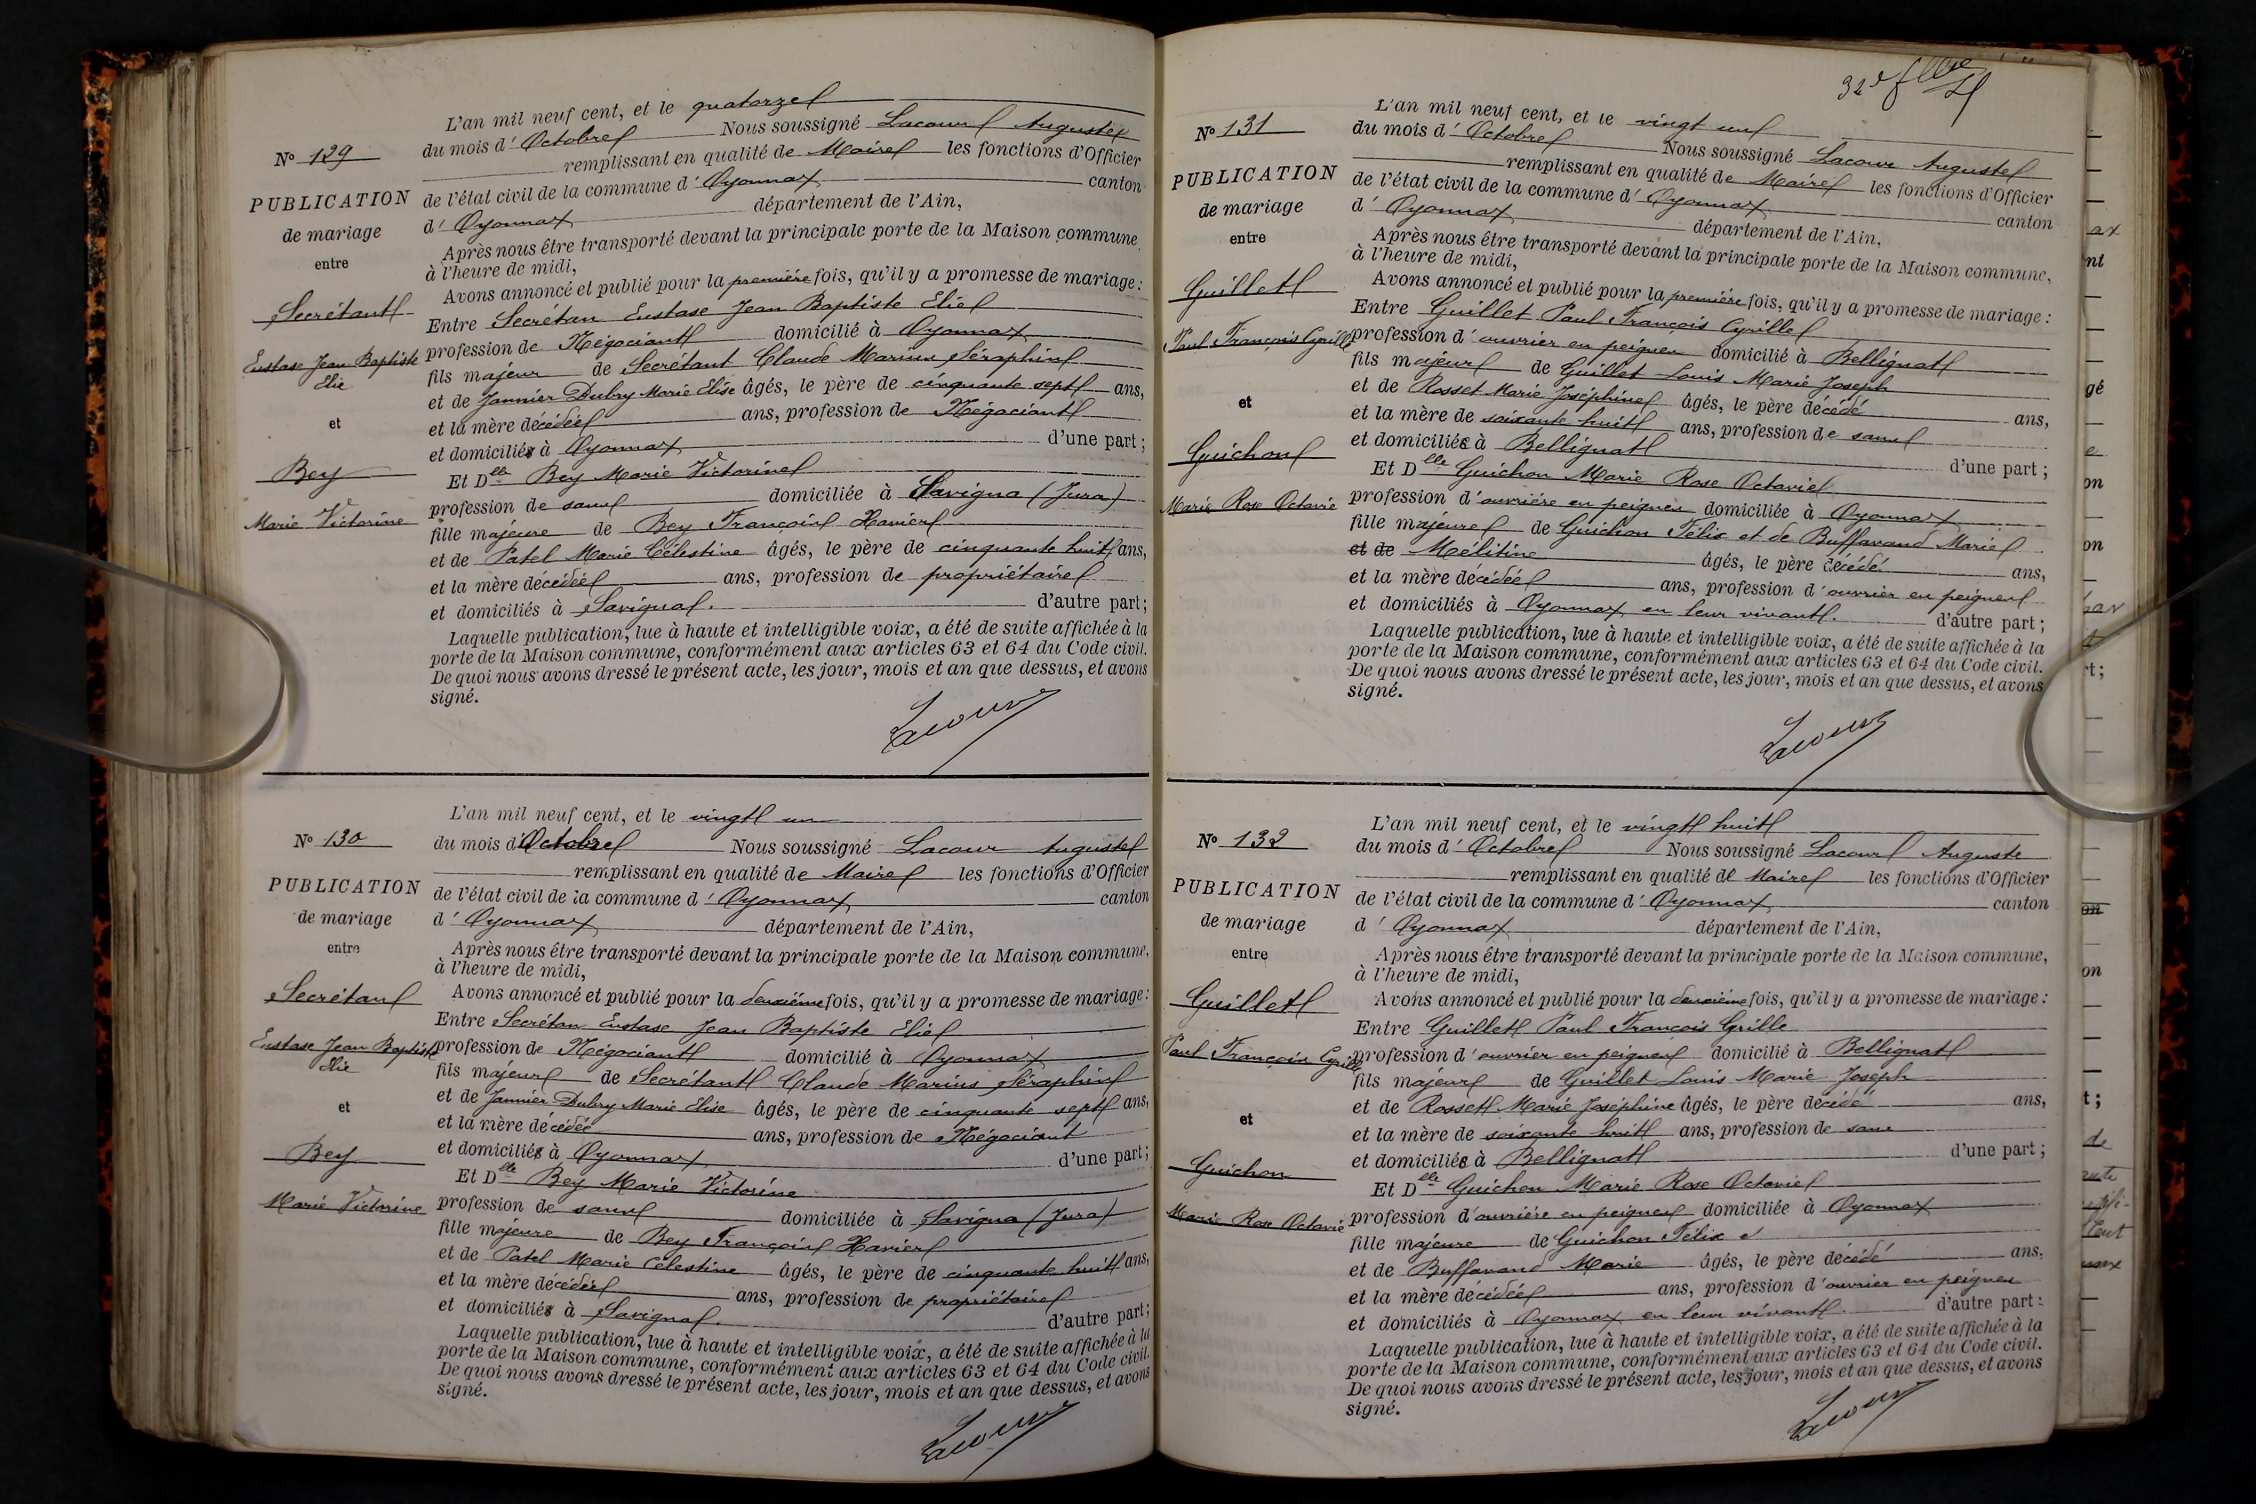 L'an mil neuf cent, et le quatorze
du mois d'Octobre Nous soussigné Lacour Auguste
remplissant en qualité de Maire les fonctions d'Officier
de l'état civil de la commune d'Oyonnax canton
d'Oyonnax département de l'Ain,
Après nous être transporté devant la principale porte de la Maison commune,
à l'heure de midi,
Avons annoncé et publié pour la première fois, qu'il y a promesse de mariage :
Entre Secrétan Eustase Jean Baptiste Elie
profession de Négociant domicilié à Oyonnax
fils majeur de Secrétant Claude Marius Séraphin
et de Jannier Dubry Marie Elise âgés, le père de cinquante sept ans,
et la mère décédée ans, profession de Négociant
et domiciliés à Oyonnax d'une part ;
Et Dlle Bey Marie Victorine
profession de sans domiciliée à Savigna (Jura)
fille majeure de Bey François Xavier
et de Patel Marie Célestine âgés, le père de cinquante huit ans,
et la mère décédée ans, profession de propriétaire
et domiciliés à Savigna. d'autre part ;
Laquelle publication, lue à haute et intelligible voix, a été de suite affichée à la
porte de la Maison commune, conformément aux articles 63 et 64 du Code civil.
De quoi nous avons dressé le présent acte, les jour, mois et an que dessus, et avons
signé.
Lacour
No 129
PUBLICATION
de mariage
entre
Secrétant
Eustase Jean Baptiste
Elie
et
Bey
Marie Victorine
L'an mil neuf cent, et le vingt un
du mois d'Octobre Nous soussigné Lacour Auguste
remplissant en qualité de Maire les fonctions d'Officier
de l'état civil de la commune d'Oyonnax canton
d'Oyonnax département de l'Ain,
Après nous être transporté devant la principale porte de la Maison commune,
à l'heure de midi,
Avons annoncé et publié pour la deuxième fois, qu'il y a promesse de mariage :
Entre Secrétan Eustase Jean Baptiste Elie
profession de Négociant domicilié à Oyonnax
fils majeur de Secrétant Claude Marius Séraphin
et de Jannier Dubry Marie Elise âgés, le père de cinquante sept ans,
et la mère décédée ans, profession de Négociant
et domiciliés à Oyonnax d'une part ;
Et Dlle Bey Marie Victorine
profession de sans domiciliée à Savigna (Jura)
fille majeure de Bey François Xavier
et de Patel Marie Célestine âgés, le père de cinquante huit ans,
et la mère décédée ans, profession de propriétaire
et domiciliés à Savigna. d'autre part ;
Laquelle publication, lue à haute et intelligible voix, a été de suite affichée à la
porte de la Maison commune, conformément aux articles 63 et 64 du Code civil.
De quoi nous avons dressé le présent acte, les jour, mois et an que dessus, et avons
signé.
Lacour
No 130
PUBLICATION
de mariage
entre
Secrétan
Eustase Jean Baptiste
Elie
et
Bey
Marie Victorine
32e
L'an mil neuf cent, et le vingt un
du mois d'Octobre Nous soussigné Lacour Auguste
remplissant en qualité de Maire les fonctions d'Officier
de l'état civil de la commune d'Oyonnax canton
d'Oyonnax département de l'Ain,
Après nous être transporté devant la principale porte de la Maison commune,
à l'heure de midi,
Avons annoncé et publié pour la première fois, qu'il y a promesse de mariage :
Entre Guillet Paul François Cyrille
profession d'ouvrier en peignes domicilié à Bellignat
fils majeur de Guillet Louis Marie Joseph
et de Rosset Marie Joséphine âgés, le père décédé ans,
et la mère de soixante huit ans, profession de sans
et domiciliés à Bellignat d'une part ;
Et Dlle Guichon Marie Rose Octavie
profession d'ouvrière en peignes domiciliée à Oyonnax
fille majeure de Guichon Félix et de Buffavand Marie
et de Mélitine âgés, le père décédé ans,
et la mère décédée ans, profession d'ouvrier en peignes
et domiciliés à Oyonnax en leur vivant. d'autre part ;
Laquelle publication, lue à haute et intelligible voix, a été de suite affichée à la
porte de la Maison commune, conformément aux articles 63 et 64 du Code civil.
De quoi nous avons dressé le présent acte, les jour, mois et an que dessus, et avons
signé.
Lacour
No 131
PUBLICATION
de mariage
entre
Guillet
Paul François Cyrille
et
Guichon
Marie Rose Octavie
L'an mil neuf cent, et le vingt huit
du mois d'Octobre Nous soussigné Lacour Auguste
remplissant en qualité de Maire les fonctions d'Officier
de l'état civil de la commune d'Oyonnax canton
d'Oyonnax département de l'Ain,
Après nous être transporté devant la principale porte de la Maison commune,
à l'heure de midi,
Avons annoncé et publié pour la deuxième fois, qu'il y a promesse de mariage :
Entre Guillet Paul François Cyrille
profession d'ouvrier en peignes domicilié à Bellignat
fils majeur de Guillet Louis Marie Joseph
et de Rosset Marie Joséphine âgés, le père décédé ans,
et la mère de soixante huit ans, profession de sans
et domiciliés à Bellignat d'une part ;
Et Dlle Guichon Marie Rose Octavie
profession d'ouvrière en peignes domiciliée à Oyonnax
fille majeure de Guichon Félix
et de Buffavand Marie âgés, le père décédé ans,
et la mère décédée ans, profession d'ouvrier en peignes
et domiciliés à Oyonnax en leur vivant. d'autre part ;
Laquelle publication, lue à haute et intelligible voix, a été de suite affichée à la
porte de la Maison commune, conformément aux articles 63 et 64 du Code civil.
De quoi nous avons dressé le présent acte, les jour, mois et an que dessus, et avons
signé.
Lacour
No 132
PUBLICATION
de mariage
entre
Guillet
Paul François Cyrille
et
Guichon
Marie Rose Octavie